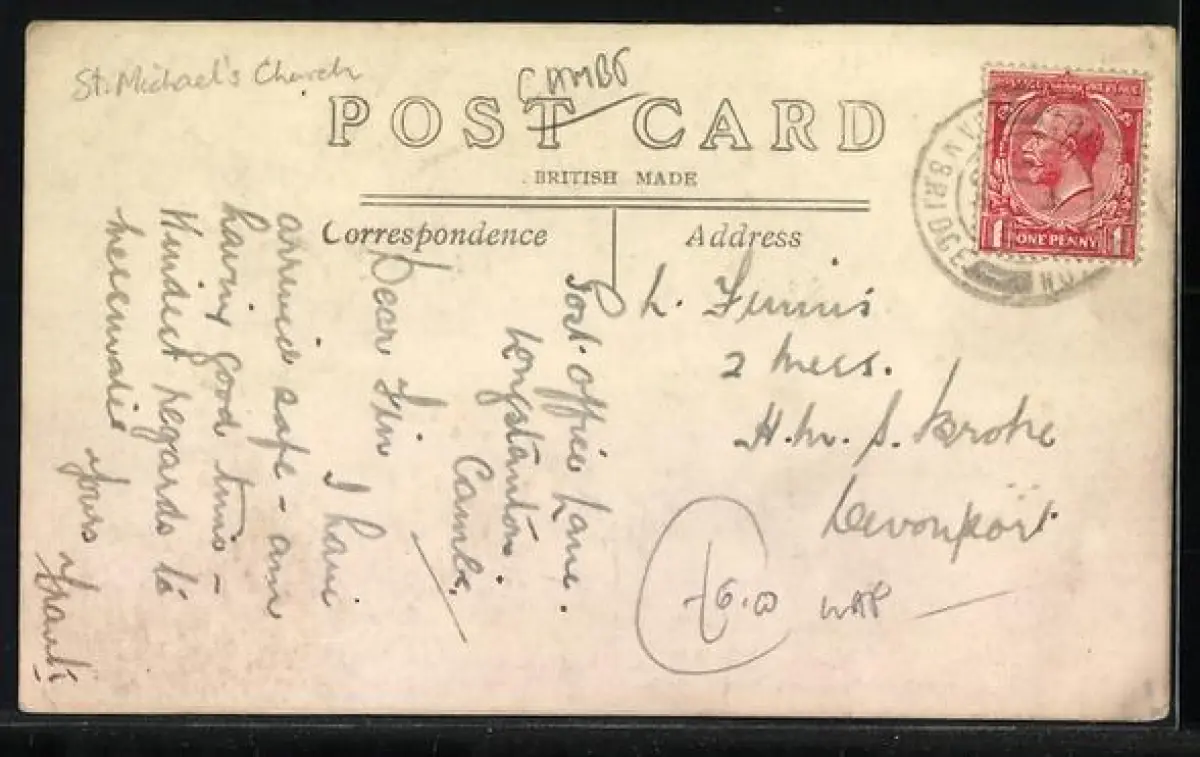 St. Michael's Church
CAMBS
POST CARD
BRITISH MADE
Correspondence
Address
Post. Office Lane.
Longstanton.
Cambs.
Dear Fin
I have
arrived safe - am
having good time -
Kindest regards to
Yours Frank
L. Finnis
2 Mess.
H.M.S. Broke
Devonport
£6.00
CAMBRIDGE
1 ONE PENNY 1